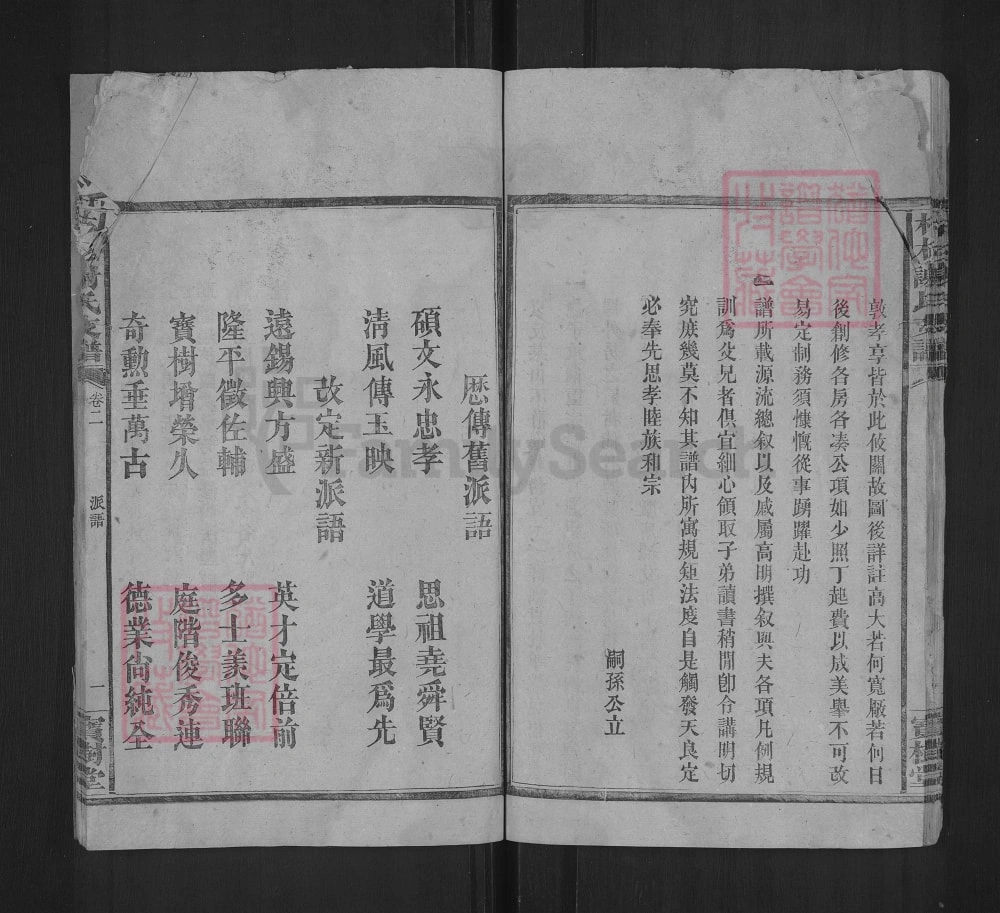 敦孝享皆於此攸關故圖後詳註高大若何寬厰若何日
後創修各房各凑公項如少照丁起費以成美舉不可改
易定制務須慷慨從事踴躍赴功
一譜所載源流總叙以及戚屬高明撰叙與夫各項凡例規
訓爲父兄者俱宜細心領取子弟讀書稍閒卽令講明切
究庶幾莫不知其譜內所寓規矩法度自是觸發天良定
必奉先思孝睦族和宗
嗣孫公立
歷傳舊派語
碩文永忠孝 思祖堯舜賢
淸風傳玉映 道學最爲先
改定新派語
遠錫興方盛 英才定倍前
隆平徵佐輔 多士羨班聯
寶樹增榮久 庭階俊秀連
奇勳垂萬古 德業尙純全
氏支譜 卷二 派語 一 寶樹堂
FamilySearch